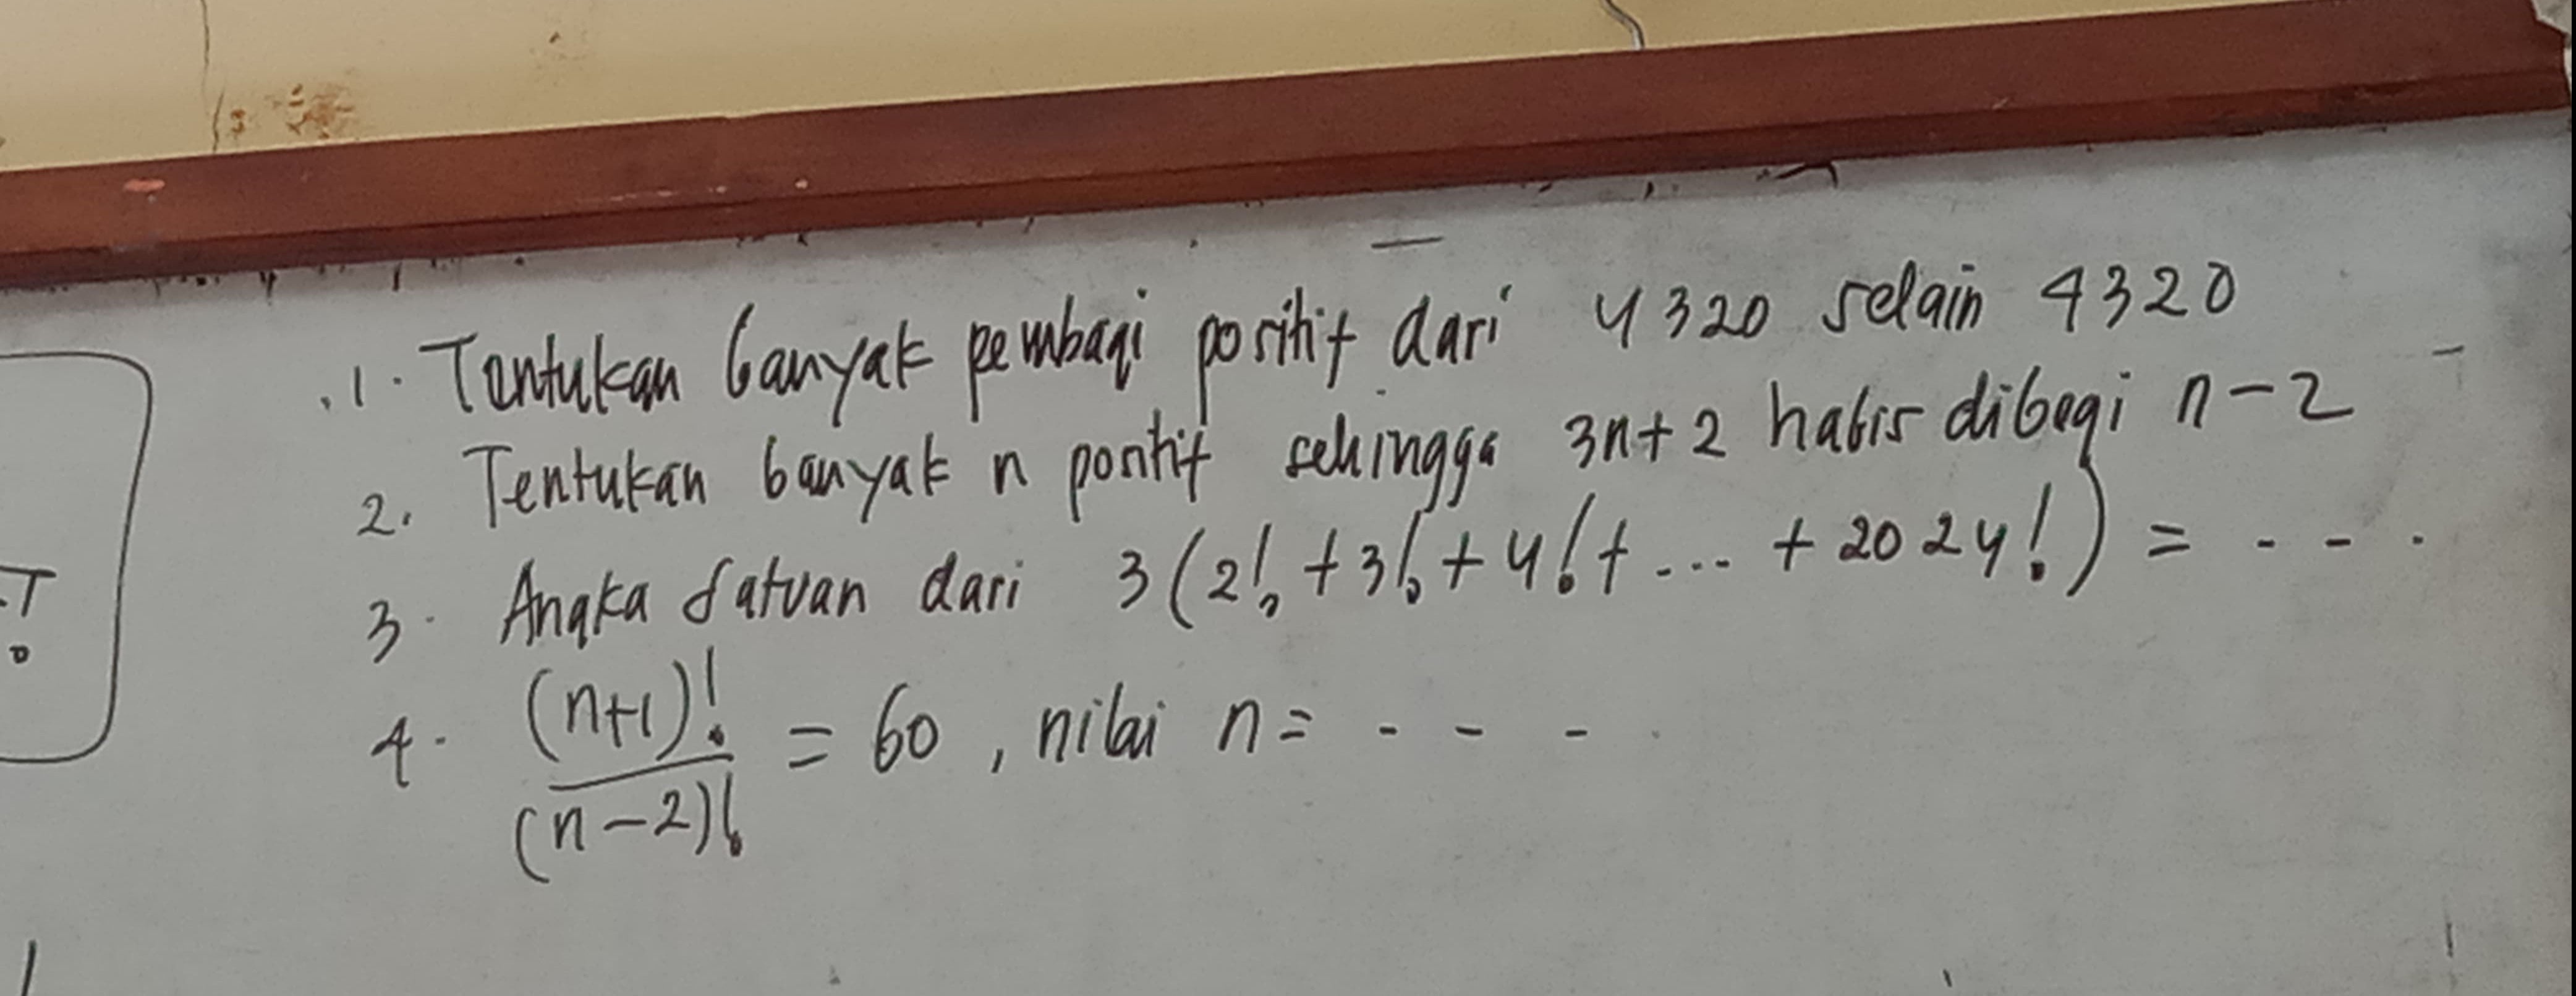 1. Tentukan banyak pembagi positif dari 4320 selain 4320
2. Tentukan banyak n positif sehingga 3n+2 habis dibagi n-2
3. Angka satuan dari 3(2! + 3! + 4! + ... + 2024!) = ...
4. (n+1)!/(n-2)! = 60, nilai n = ...